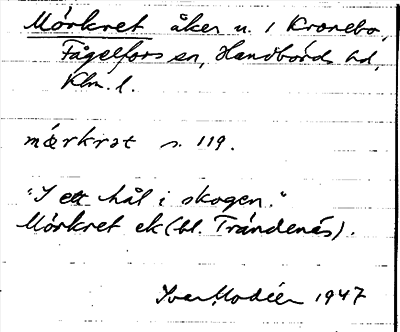 Mörkret åker u. 1 Kronebo,
Fågelfors sn, Handbörds hd,
Klm. l.
mœrkrət s. 119.
"I ett hål i skogen."
Mörkret ek (bl. Trändenäs).
Ivar Modéer 1947